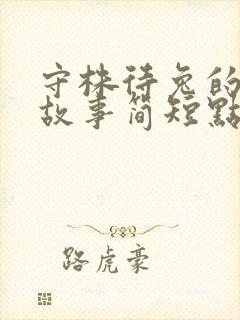 守株待兔的
故事简短點
路虎豪